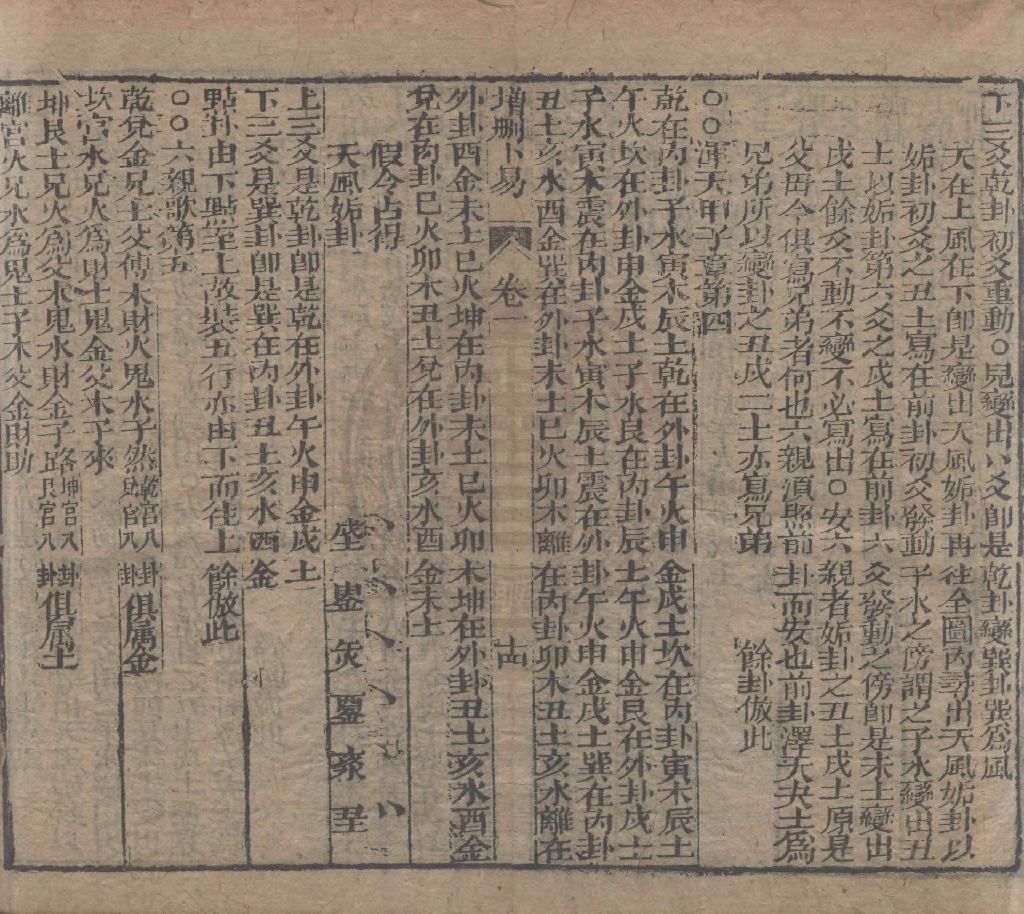 下三爻乾卦初爻重動○見變出八爻卽是乾卦變巽卦巽爲風
天在上風在下卽是變出天風姤卦再往全圖內尋出天風姤卦以
姤卦初爻之丑土寫在前卦初爻發動子水之傍謂之子水變出丑
土以姤卦第六爻之戌土寫在前卦六爻發動之傍卽是未土變出
戌土餘爻不動不變不必寫出○安六親者姤卦之丑土戌土原是
父母今俱寫兄弟者何也六親須照前卦而安也前卦澤天夬土爲
兄弟所以變卦之丑戌二土亦寫兄弟 餘卦倣此
○○渾天甲子章第四
乾在內卦子水寅木辰土乾在外卦午火申金戌土坎在內卦寅木辰土
午火坎在外卦申金戌土子水艮在內卦辰土午火申金艮在外卦戌土
子水寅木震在內卦子水寅木辰土震在外卦午火申金戌土巽在內卦
丑土亥水酉金巽在外卦未土巳火卯木離在內卦卯木丑土亥水離在
增刪卜易 卷一 十四
外卦酉金未土巳火坤在內卦未土巳火卯木坤在外卦丑土亥水酉金
兌在內卦巳火卯木丑土兌在外卦亥水酉金未土
假令占得
天風姤卦
上三爻是乾卦卽是乾在外卦午火申金戌土
下三爻是巽卦卽是巽在內卦丑土亥水酉金
點卦由下點至上故裝五行亦由下而往上餘倣此
○○六親歌第五
乾兌金兄土父傳木財火鬼水子然乾宮八卦兌宮八卦俱属金
坎宮水兄火爲財土鬼金父木子來
坤艮土兄火爲父木鬼水財金子路坤宮八卦艮宮八卦俱属土
離宮火兄水爲鬼土子木父金財助